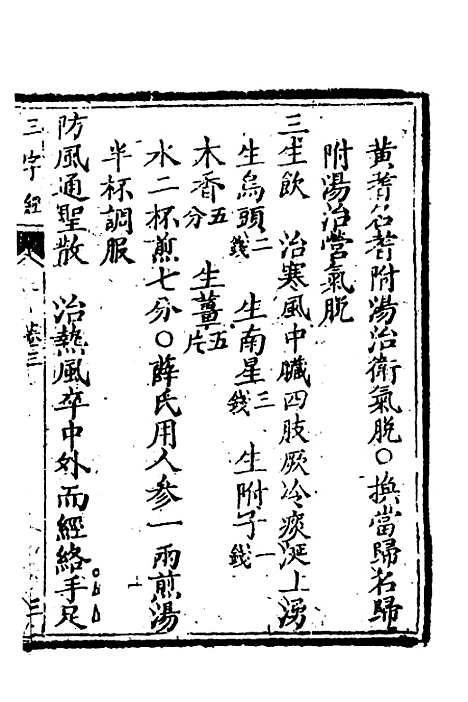 黄耆名耆附湯治衛氣脫○換當歸名歸
附湯治營氣脫
三生飲　治寒風中臟四肢厥冷痰涎上湧
生烏頭二錢　生南星三錢　生附子一錢
木香五分　生薑五片
水二杯煎七分○薛氏用人參一兩煎湯
半杯調服
防風通聖散　治熱風卒中外而經絡手足
三字經　卷三　三